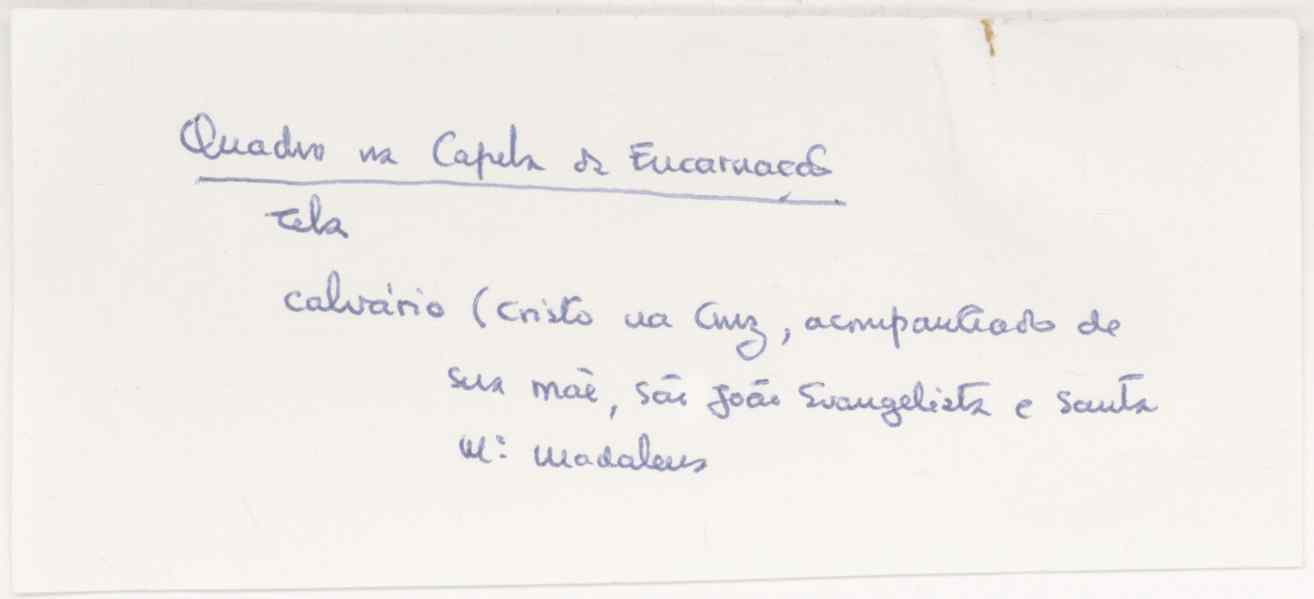 Quadro na Capela da Encarnação
tela
calvário (Cristo na Cruz, acompanhado de
sua mãe, São João Evangelista e Santa
Mª Madalena